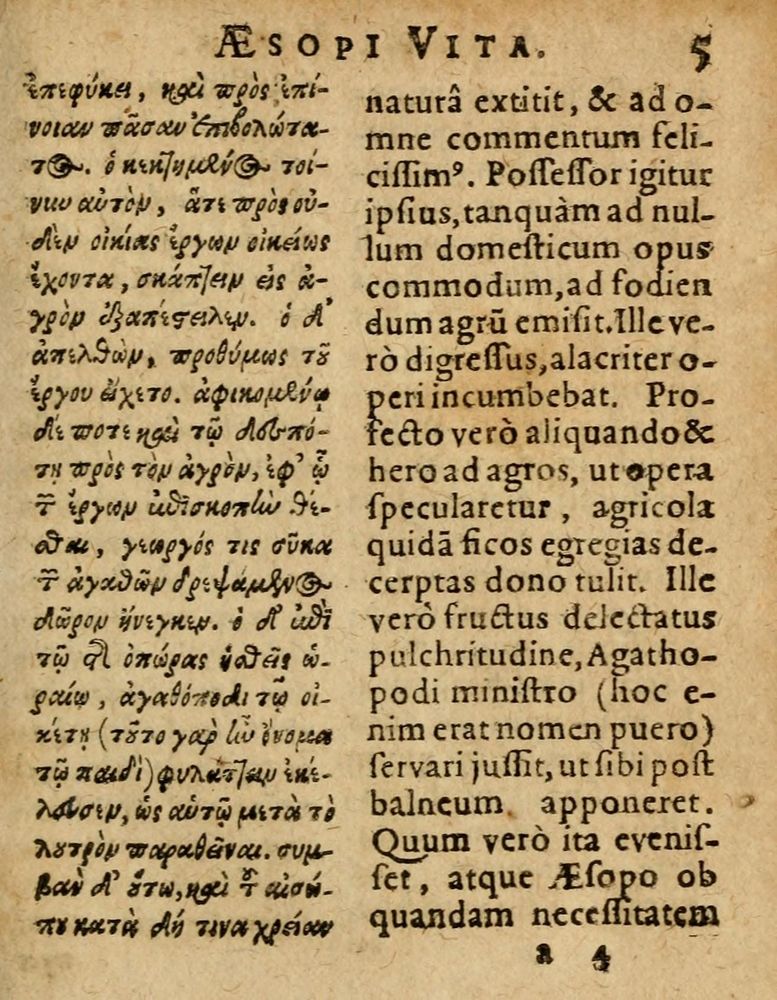 ÆSOPI VITA. 5
ἐπεφύκει, καὶ πρὸς ἐπί-
νοιαν πᾶσαν ἐπιβολώτα-
τος. ὁ κεκτημένος τοί-
νυν αὐτὸν, ἅτε πρὸς οὐ-
δὲν οἰκίας ἔργων οἰκείως
ἔχοντα, σκάπτειν εἰς ἀ-
γρὸν ἐξαπέστειλεν. ὁ δ'
ἀπελθὼν, προθύμως τοῦ
ἔργου εἴχετο. ἀφικομένῳ
δέ ποτε καὶ τῷ δεσπό-
τῃ πρὸς τὸν ἀγρὸν, ἐφ' ᾧ
τῶν ἔργων ἐπισκοπὴν θέ-
σθαι, γεωργός τις σῦκα
τῶν ἀγαθῶν δρεψάμενος
δῶρον ἤνεγκεν. ὁ δ' ἐπὶ
τῷ τῆς ὀπώρας ἡσθεὶς ὡ-
ραίῳ, ἀγαθόποδι τῷ οἰ-
κέτῃ (τοῦτο γὰρ ἦν ὄνομα
τῷ παιδὶ) φυλάττειν ἐκέ-
λευσεν, ὡς αὐτῷ μετὰ τὸ
λουτρὸν παραθεῖναι. συμ-
βὰν δ' οὕτω, καὶ τοῦ αἰσώ-
που κατὰ δή τινα χρείαν
naturâ extitit, & ad o-
mne commentum feli-
cissimꝰ. Possessor igitur
ipsius, tanquàm ad nul-
lum domesticum opus
commodum, ad fodien
dum agrũ emisit. Ille ve-
rò digressus, alacriter o-
peri incumbebat. Pro-
fecto verò aliquando &
hero ad agros, ut opera
specularetur, agricola
quidã ficos egregias de-
cerptas dono tulit. Ille
verò fructus delectatus
pulchritudine, Agatho-
podi ministro (hoc e-
nim erat nomen puero)
servari jussit, ut sibi post
balneum apponeret.
Quum verò ita evenis-
set, atque Æsopo ob
quandam necessitatem
a 4